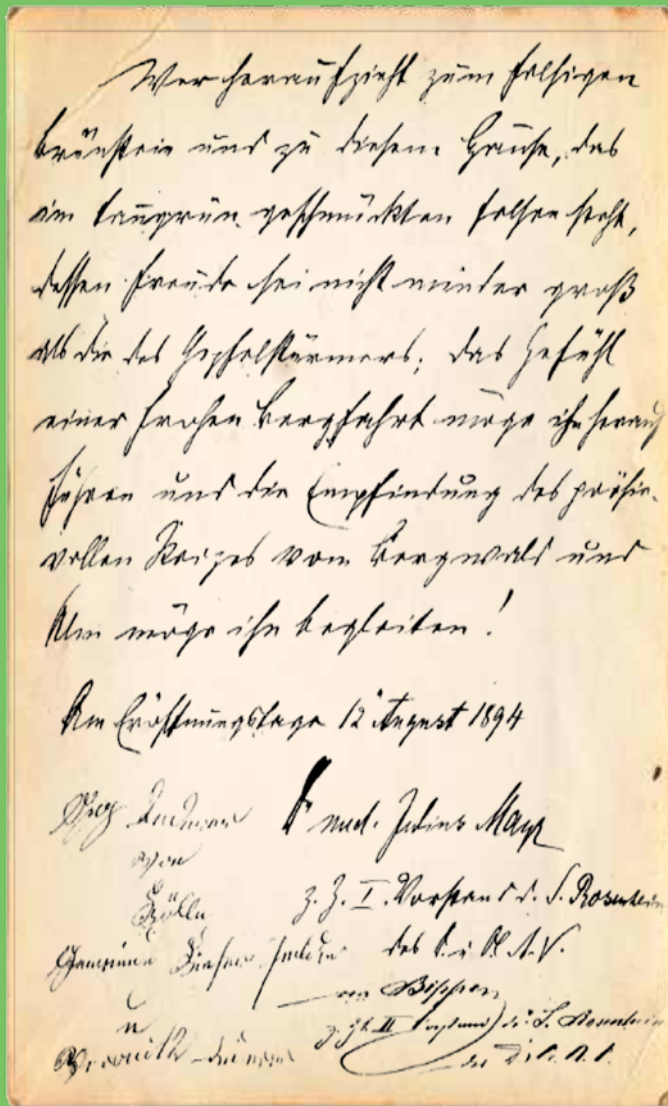 Wer heraufzieht zum felsigen
Brünstein und zu diesem Hause, das
im tanngrün geschmückten Felsen steht,
dessen Freude sei nicht minder groß
als die des Gipfelstürmers; das Gefühl
einer frohen Bergfahrt möge ihn herauf
führen und die Empfindung des poësie-
vollen Reizes vom Bergwald und
Alm möge ihn begleiten!
Am Eröffnungstage 12 August 1894
Dr med. Julius Mayr
von
z. Z. I. Vorstand d. S. Rosenheim
des D. u. Ö. A. V.
z. Zt. II Vorstand d. S. Rosenheim